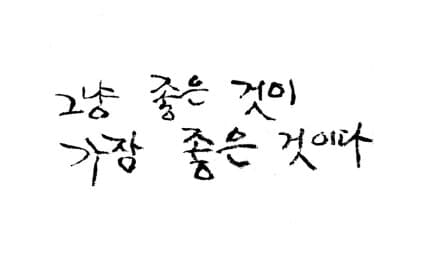 그냥 좋은 것이
가장 좋은 것이다